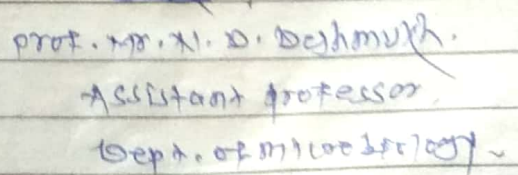 Prof. Mr. N. D. Deshmukh.
Assistant professor.
Dept. of microbiology